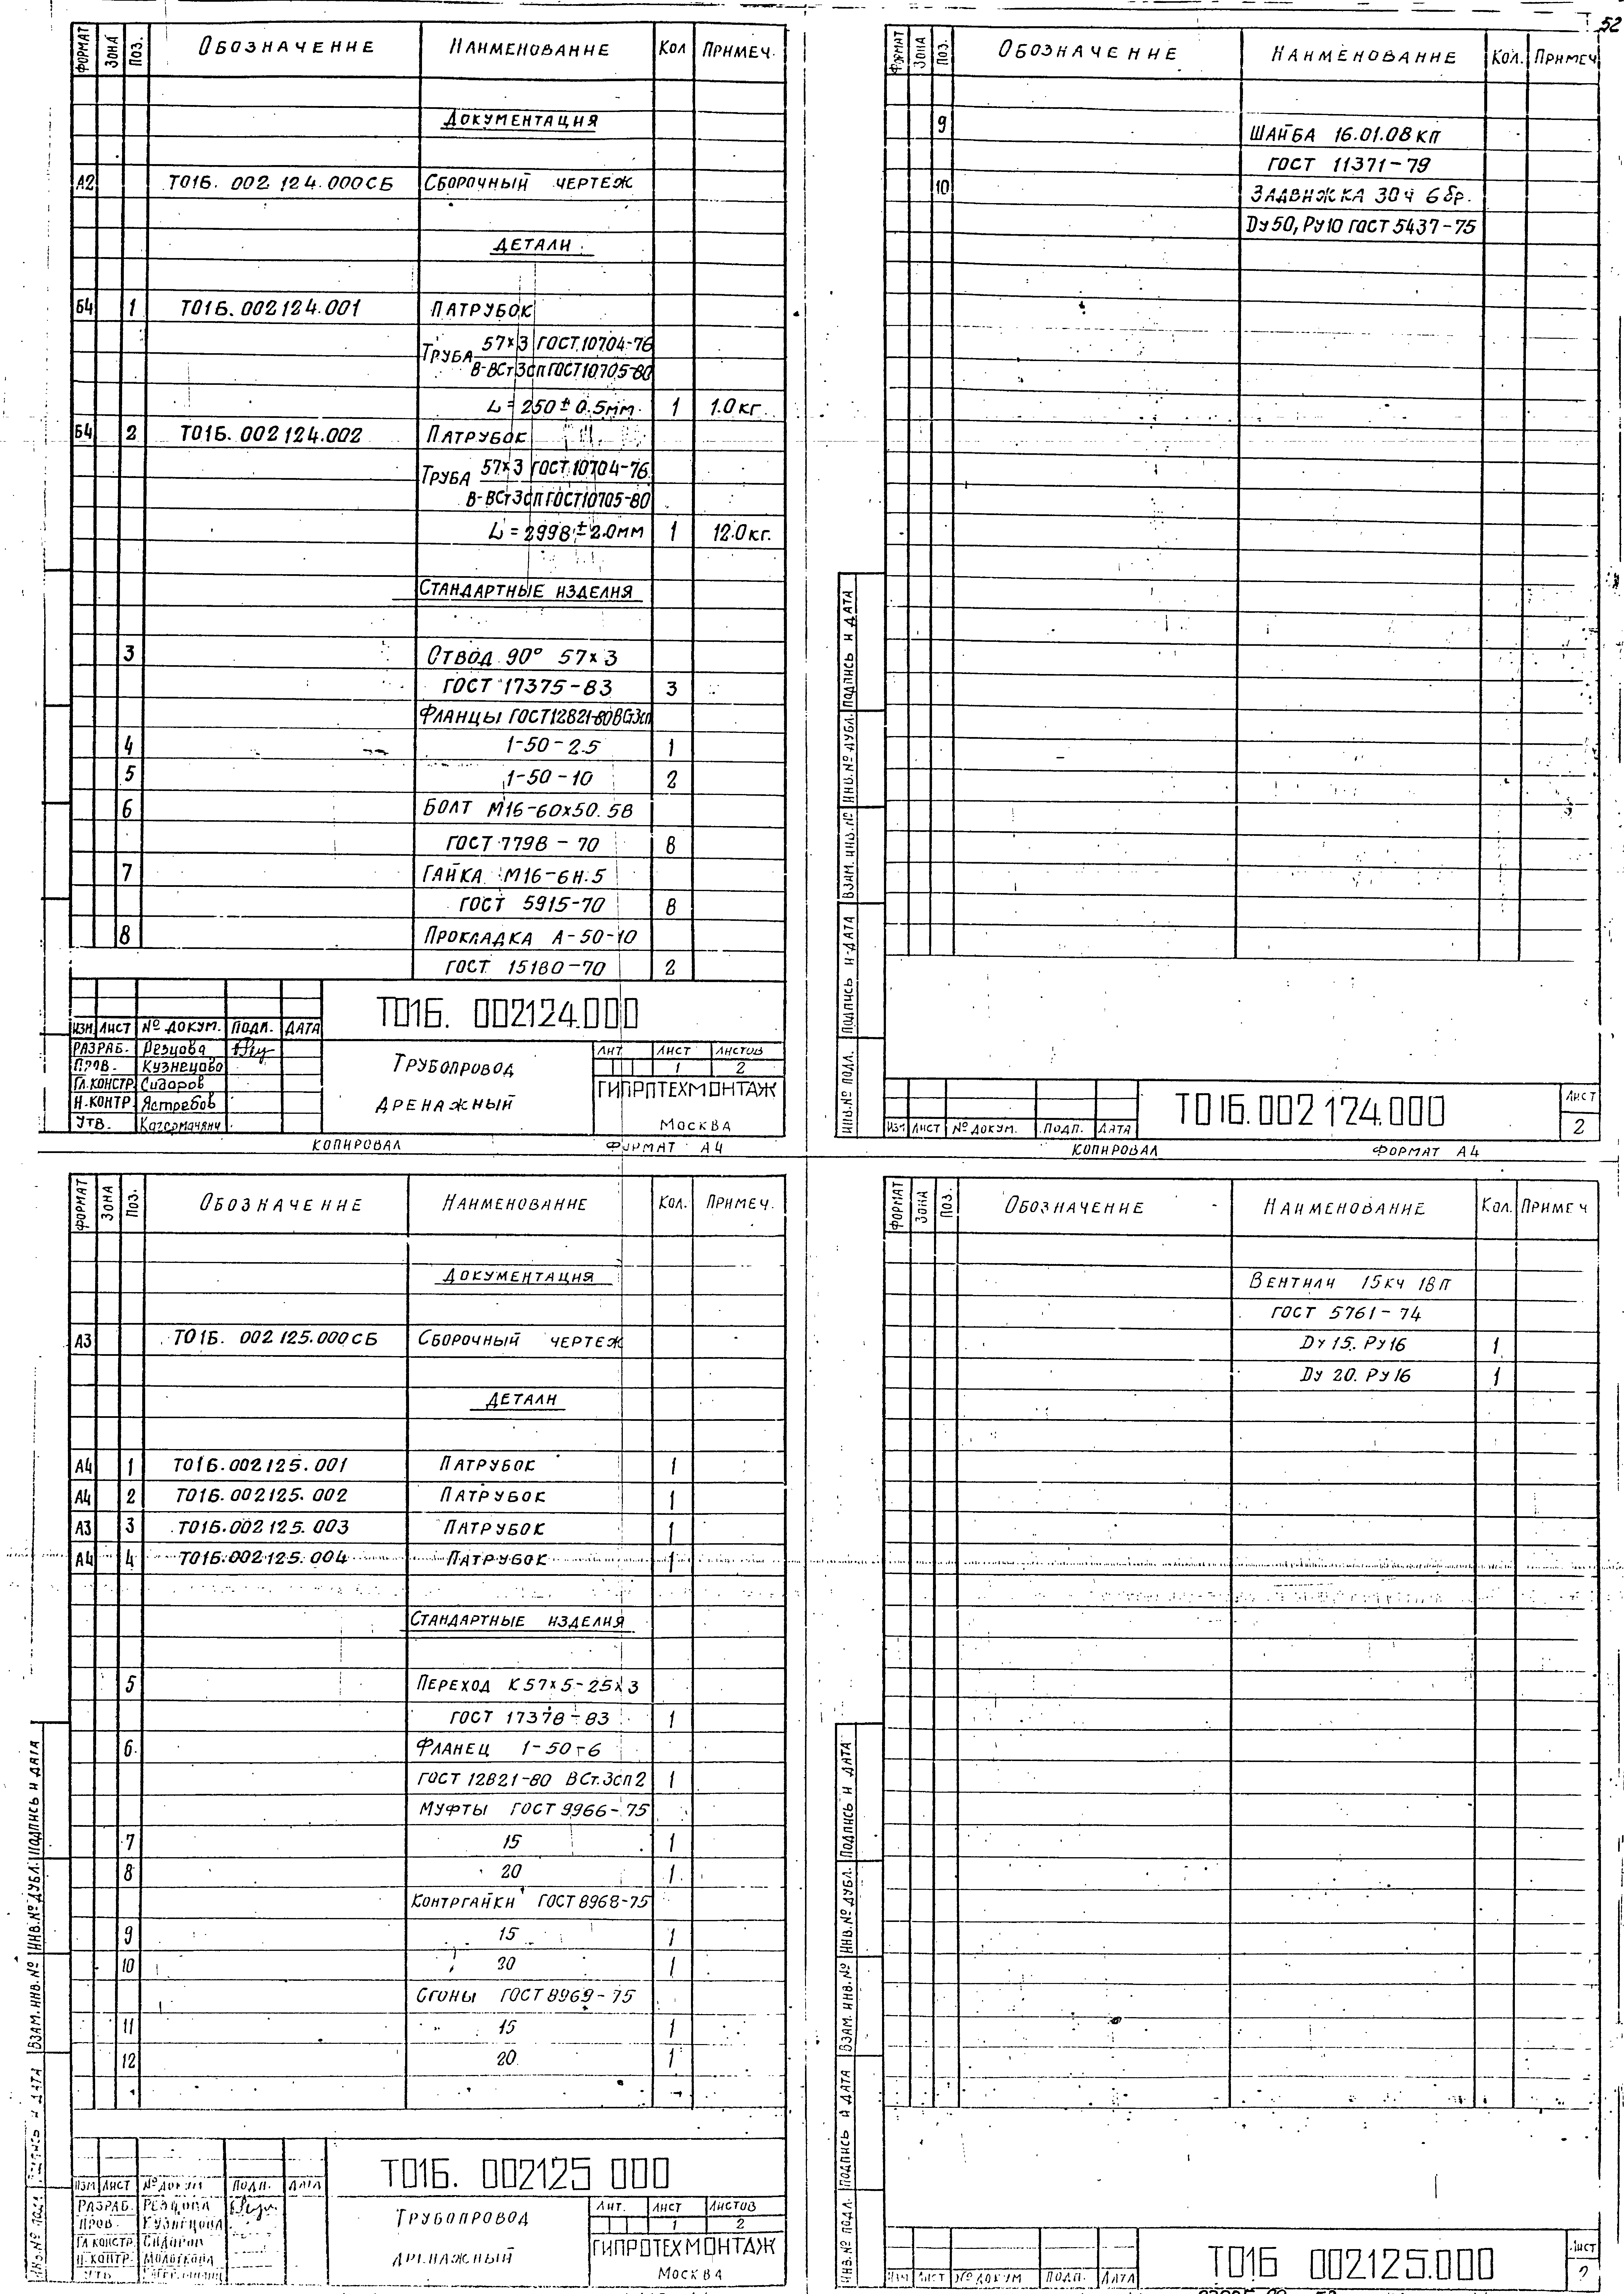 52
ФОРМАТ ЗОНА ПОЗ. ОБОЗНАЧЕНИЕ НАИМЕНОВАНИЕ КОЛ ПРИМЕЧ.
ДОКУМЕНТАЦИЯ
А2 Т01Б. 002 124.000СБ СБОРОЧНЫЙ ЧЕРТЕЖ
ДЕТАЛИ
Б4 1 Т01Б. 002124.001 ПАТРУБОК
57×3 ГОСТ 10704-76
ТРУБА
В-ВСт3сп ГОСТ10705-80
L=250±0.5мм 1 1.0кг.
Б4 2 Т01Б. 002124.002 ПАТРУБОК
57×3 ГОСТ 10704-76
ТРУБА
В-ВСт3сп ГОСТ10705-80
L=2998±2.0мм 1 12.0кг.
СТАНДАРТНЫЕ ИЗДЕЛИЯ
3 ОТВОД 90° 57×3
ГОСТ 17375-83 3
ФЛАНЦЫ ГОСТ12821-80ВСт3сп
4 1-50-2.5 1
5 1-50-10 2
6 БОЛТ М16-60х50.58
ГОСТ 7798-70 8
7 ГАЙКА М16-6Н.5
ГОСТ 5915-70 8
8 ПРОКЛАДКА А-50-10
ГОСТ 15180-70 2
Т01Б. 002124.000
ИЗМ. ЛИСТ № ДОКУМ. ПОДП. ДАТА
РАЗРАБ. Резцова
ПРОВ. Кузнецова
ГЛ.КОНСТР. Сидоров
Н.КОНТР. Ястребов
УТВ.
ТРУБОПРОВОД
ДРЕНАЖНЫЙ
ЛИТ. ЛИСТ ЛИСТОВ
1 2
ГИПРОТЕХМОНТАЖ
МОСКВА
КОПИРОВАЛ ФОРМАТ А4
ФОРМАТ ЗОНА ПОЗ. ОБОЗНАЧЕНИЕ НАИМЕНОВАНИЕ КОЛ. ПРИМЕЧ
9 ШАЙБА 16.01.08кп
ГОСТ 11371-79
10 ЗАДВИЖКА 30ч 6бр.
Dу50, Ру10 ГОСТ 5437-75
ИНВ.№ ПОДЛ. ПОДПИСЬ И ДАТА ВЗАМ. ИНВ.№ ИНВ.№ ДУБЛ. ПОДПИСЬ И ДАТА
Т01Б.002124.000
ИЗМ ЛИСТ № ДОКУМ. ПОДП. ДАТА
ЛИСТ
2
КОПИРОВАЛ ФОРМАТ А4
ФОРМАТ ЗОНА ПОЗ. ОБОЗНАЧЕНИЕ НАИМЕНОВАНИЕ КОЛ. ПРИМЕЧ.
ДОКУМЕНТАЦИЯ
А3 Т01Б. 002125.000СБ СБОРОЧНЫЙ ЧЕРТЕЖ
ДЕТАЛИ
А4 1 Т01Б.002125.001 ПАТРУБОК 1
А4 2 Т01Б.002125.002 ПАТРУБОК 1
А3 3 Т01Б.002125.003 ПАТРУБОК 1
А4 4 Т01Б.002125.004 ПАТРУБОК 1
СТАНДАРТНЫЕ ИЗДЕЛИЯ
5 ПЕРЕХОД К57×5-25×3
ГОСТ 17378-83 1
6 ФЛАНЕЦ 1-50-6
ГОСТ 12821-80 ВСт.3сп2 1
МУФТЫ ГОСТ 9966-75
7 15 1
8 20 1
КОНТРГАЙКИ ГОСТ 8968-75
9 15 1
10 30 1
СГОНЫ ГОСТ 8969-75
11 15 1
12 20 1
ПОДПИСЬ И ДАТА ВЗАМ.ИНВ.№ ИНВ.№ ДУБЛ. ПОДПИСЬ И ДАТА
Т01Б. 002125 000
ИЗМ ЛИСТ № ДОКУМ ПОДП. ДАТА
РАЗРАБ. РЕЗЦОВА
ПРОВ. КУЗНЕЦОВА
ГЛ.КОНСТР. СИДОРОВ
Н.КОНТР.
УТВ.
ТРУБОПРОВОД
ДРЕНАЖНЫЙ
ЛИТ. ЛИСТ ЛИСТОВ
1 2
ГИПРОТЕХМОНТАЖ
МОСКВА
ФОРМАТ ЗОНА ПОЗ. ОБОЗНАЧЕНИЕ НАИМЕНОВАНИЕ КОЛ. ПРИМЕЧ
ВЕНТИЛИ 15кч 18п
ГОСТ 5761-74
Dу 15. Ру16 1
Dу 20. Ру16 1
ИНВ.№ ПОДЛ. ПОДПИСЬ И ДАТА ВЗАМ. ИНВ.№ ИНВ.№ ДУБЛ. ПОДПИСЬ И ДАТА
Т01Б 002125.000
ИЗМ ЛИСТ № ДОКУМ ПОДП. ДАТА
ЛИСТ
2